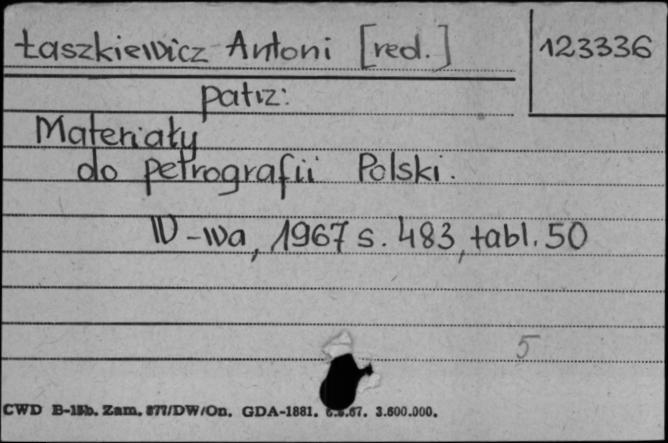 Łaszkiewicz Antoni [red.] 123336
patrz:
Materiały
do petrografii Polski.
W-wa, 1967 s. 483, tabl. 50
5
CWD B-15b. Zam. 877/DW/On. GDA-1881. 3.600.000.